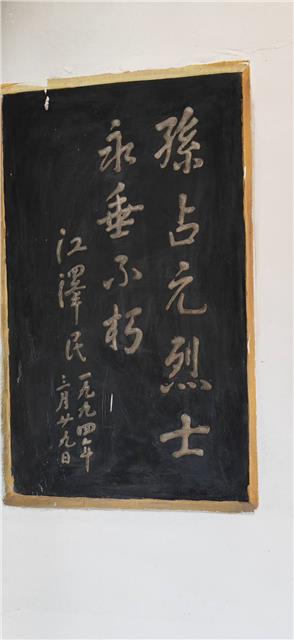 孫占元烈士
永垂不朽
江澤民
一九九四年
三月廿九日